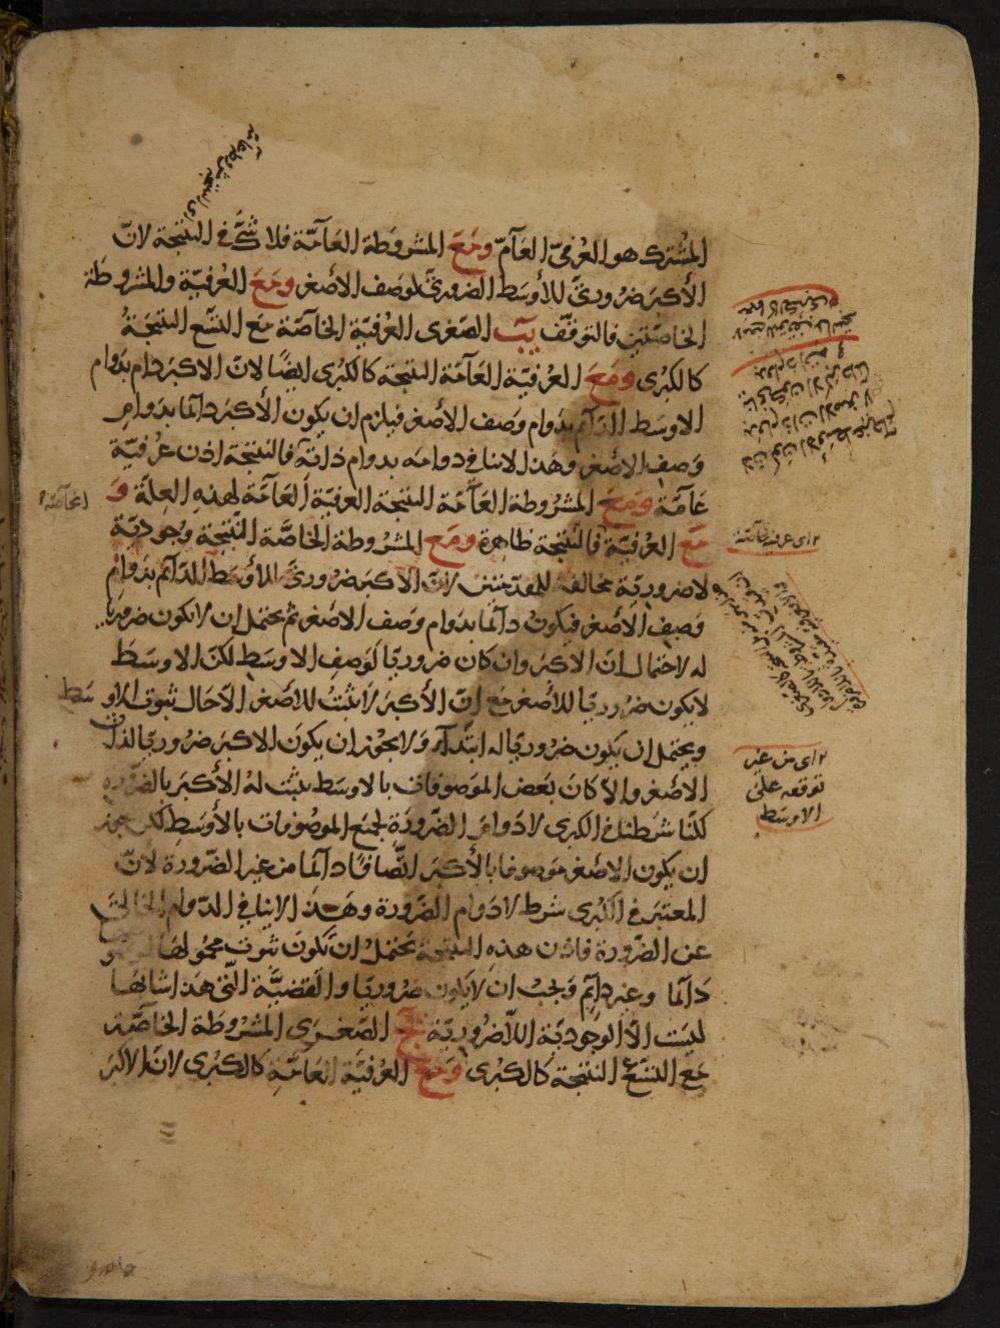 المشترك هو العرفىّ العآمّ ومَعَ المشروطة العَآمّة فلا شَكّ فى النتيجة لانّ
الأكبرَ ضرورىٌّ للأوسَط الضرورىِّ لوصف الأصغر ومَعَ العُرفيّة والمشروطَة
الخاصّتين فالتوقّف يبَ الصّغرى العُرفيّة الخاصّة مَع التسَّع النتيجَةُ
كالكبُرى ومَعَ العُرفيّة العَآمّة النتيجة كالكُبرى ايضًا لانّ الاكبرَ دام بدَوام
الاوسَط الدّآئم بدَوام وصَف الأصغر فيلزم ان يكون الأكبرَ دائما بدَوام
وَصفِ الاصغر وهَذا لا ينافى دوامَه بدوام ذاته فالنتيجة اذن عرُفيّة
عَامّة ومَعَ المشرُوطة العَآمّة النتيجة العرفيّة العَآمّة لهذهِ العِلّة وَ
الخاصّة
مَع العُرفيّة فالنتيجة ظاهرة ومَعَ المشرُوطة الخاصّة النّتيجة وجُوديّة
لاضروريّة مخالفة للمقدّمتين لانّ الاكبرَ ضرورىٌّ للأوسَط الدّآئم بدَوامِ
وَصفِ الأصغر فيكون دآئما بدَوام وَصف الاصغر ثم يحتمل ان لا يكون ضروريا
له لاحتمال انّ الاكبر وان كان ضروريّا لوَصفِ الاوسَطِ لكنّ الاوسَط
لايكون ضرُوريّا للأصغر مَع انّ الأكبرَ لا يثبُتُ للاصَغر الّا حَال ثبوت الاوسَط
ويحتمل ان يكون ضروريّا له ابتدآء وَلا يجُوز ان يكونَ الاكبرَ ضروريّا لذات
الاصَغر والاّ كانَ بَعض الموَصوفات بالاوسَط يثبت لهُ الأكبرَ بالضّرورة
لكنّا شرَطنا فى الكبرى لادَوامَ الضّرورَة لجميَع الموصُوفات بالأوسَطِ لكن يجوز
ان يكون الاصَغر موَصوفا بالأكبر اتّصافًا دآئما من غير الضّرورة لأنّ
المعتبرَ فى الكبُرى شرط لادَوام الضّرورة وهَذا لا ينافى الدّوام الخالى
عن الضّرورة فاذن هذهِ النتيجة تحتملُ ان يكونَ ثبوت محمُولها
دَآئما وغيرَ دائم وَيجبُ ان لا يكون ضرُوريّا والقضيّة الّتى هَذا شانُهَا
ليسَت الاّ الوجوديّة اللّاضرُوريّة يجَ الصّغرَى المشرُوطَة الخاصّة
مَع التسَّع النتيجة كالكبُرى ومَعَ العُرفيّة العَامّة كالكُبرى لانّ الاكبرَ
اى عرفية خاصّة
اى من غير
توقفه على
الاوسَط